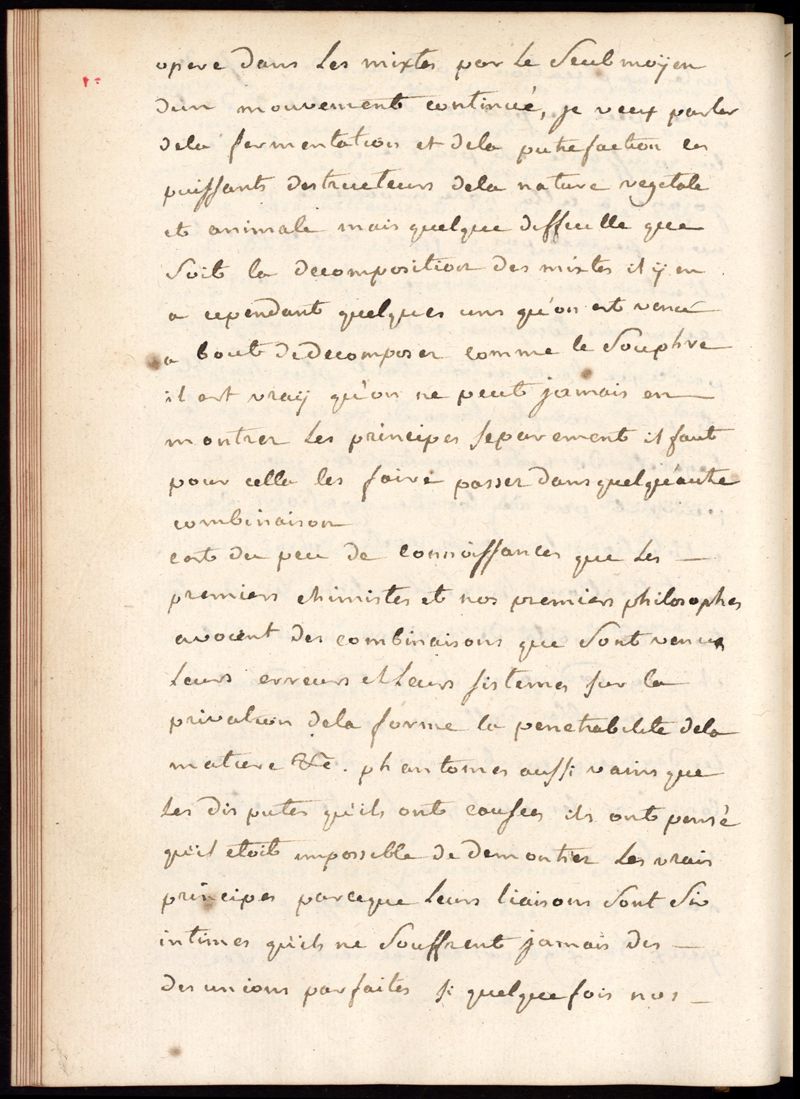 opere dans les mixtes par le seul moÿen
dun mouvement continué, je veux parler
dela fermentation et dela putrefaction ces
puissants destructeurs dela nature vegetale
et animale mais quelque difficille que
soit la decomposition des mixtes il ÿ en
a cependant quelques uns qu'on est venu
a bout de decomposer comme le souphre
il est vraÿ qu'on ne peut jamais en —
montrer les principes separement il faut
pour cella les faire passer dans quelqu'autre
combinaison
cest du peu de connoissances que les —
premiers chimistes et nos premiers philosophes
avoient des combinaisons que sont venus
leurs erreurs et leurs sistemes sur la
privation dela forme la penetrabilite dela
matiere &c. phantomes aussi vains que
les disputes qu'ils ont causées ils ont pensé
qu'il etoit impossible de demontrer les vrais
principes parceque leurs liaisons sont si
intimes qu'ils ne souffrent jamais des —
desunions parfaites si quelquefois nos —